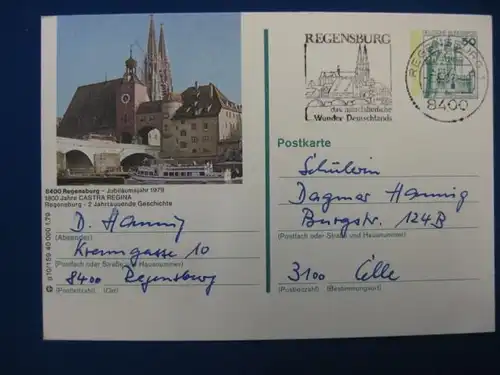 8400 Regensburg - Jubiläumsjahr 1979
1800 Jahre CASTRA REGINA
Regensburg - 2 Jahrtausende Geschichte
D. Hannig
(Absender)
Kramgasse 10
(Postfach oder Straße und Hausnummer)
8400 Regensburg
(Postleitzahl) (Ort)
p10/159 40 000 1.79
REGENSBURG
das mittelalterliche
Wunder Deutschlands
REGENSBURG 1
8400
DEUTSCHE BUNDESPOST
50
Postkarte
Schülerin
Dagmar Hannig
Burgstr. 124B
(Postfach oder Straße und Hausnummer)
3100 Celle
(Postleitzahl) (Bestimmungsort)